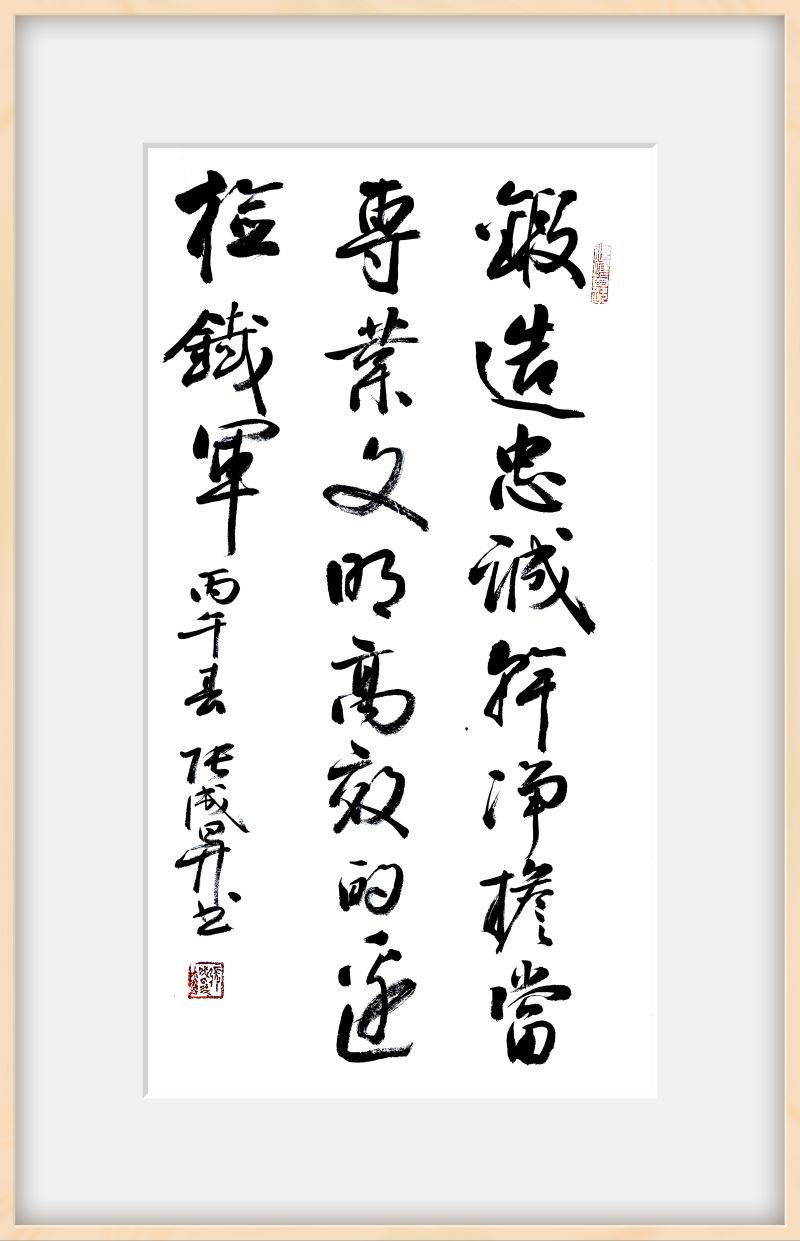 鍛造忠誠幹淨擔當
專業文明高效的邊
檢鐵軍
丙午春 張成昇书